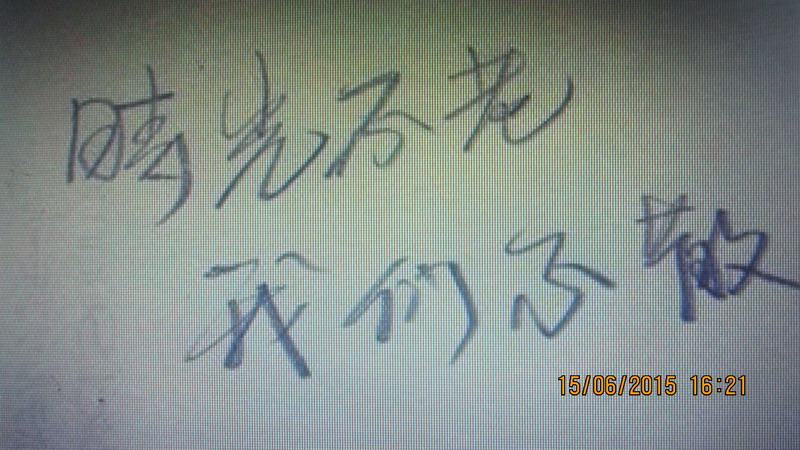 時光不老
我们不散
15/06/2015 16:21